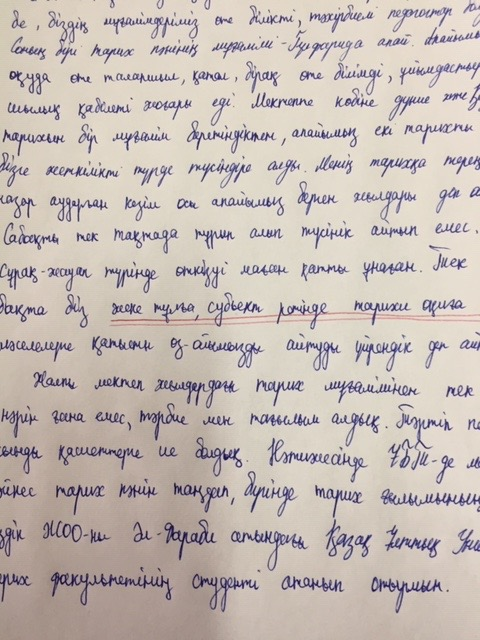 де, біздің мұғалімдеріміз өте білікті, тәжірбиелі педогогтар бол
Соның бірі тарих пәнінің мұғалімі - Гүлфарида апай. Апайымы
оқуда өте талапшыл, қатал, бірақ өте білімді, ұйымдастыру
шылық қабілеті жоғары еді. Мектепте көбіне дүние және Қ
тарихын бір мұғалім беретіндіктен, апайымыз екі тарихты
бізге жеткілікті түрде түсіндіре алды. Менің тарихқа терең
назар аударған кезім осы апайымыз берген жылдары деп а
Сабақты тек тақтада тұрып алып түсінік айтып емес.
Сұрақ-жауап түрінде өткізуді маған қатты ұнаған. Тек
бақта біз жеке тұлға, субъект ретінде тарихи оқиға
мәселелере қатысты өз-ойымызды айтуды үйрендік деп ай
Жалпы мектеп жылдардағы тарих мұғалімінен тек
нәрін ғана емес, тәрбие мен тағылым алдық. Тәртіп пе
сынды қасиеттерге ие болдық. Нәтижесінде ҰБТ-де
бейнес тарих пәнін таңдап, бүгінде тарих ғылымының
здік ЖОО-ны Әл-Фараби атындағы Қазақ Ұлттық Уни
арих факультетінің студенті атанып отырмын.